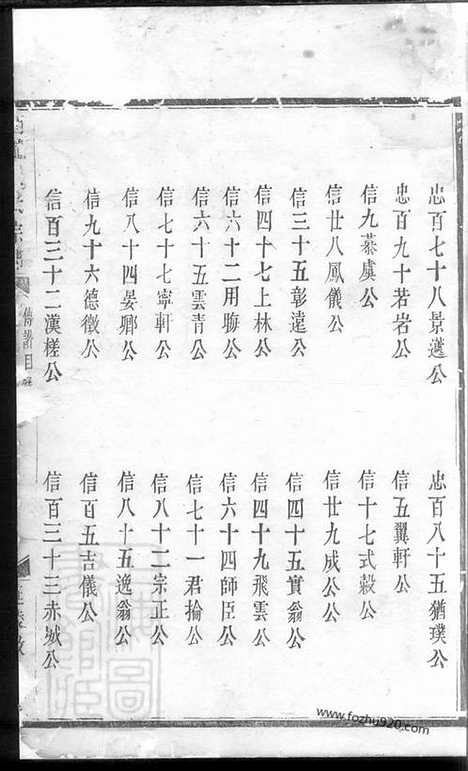 忠百七十八景邁公
忠百八十五猶璞公
忠百九十若岩公
信五翼軒公
信九慕虞公
信十七式穀公
信廿八鳳儀公
信廿九成公公
信三十五彰遠公
信四十五實翁公
信四十七上林公
信四十九飛雲公
信六十二用晦公
信六十四師臣公
信六十五雲青公
信七十一君掄公
信七十七寧軒公
信八十二宗正公
信八十四晏卿公
信八十五逸翁公
信九十六德徵公
信百五吉儀公
信百三十二漢槎公
信百三十三赤城公
傳讚目
www.fozhu920.com